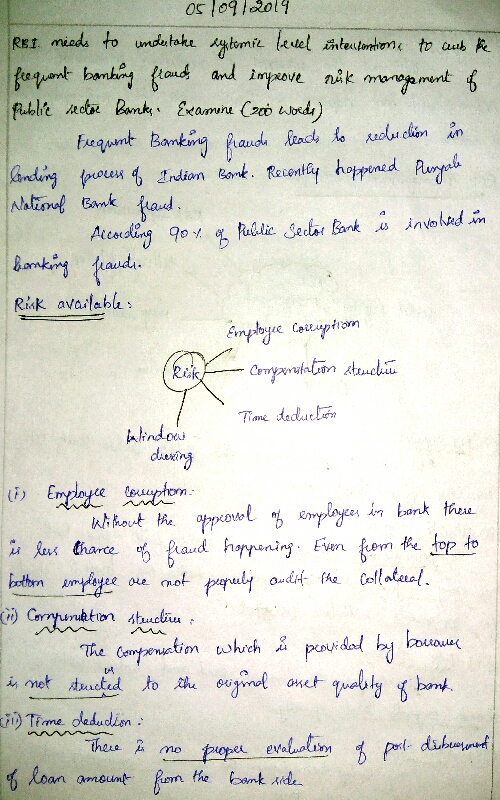 05/09/2019
RBI needs to undertake systemic level interventions to curb the
frequent banking frauds and improve risk management of
Public sector Banks. Examine (200 words)
Frequent Banking frauds leads to reduction in
lending process of Indian Bank. Recently happened Punjab
National Bank fraud.
According 90% of Public Sector Bank is involved in
banking frauds.
Risk available:
Employee corruption
Risk
Compensation structure
Time deduction
Window
dressing
(i) Employee corruption:
Without the approval of employees in bank there
is less chance of fraud happening. Even from the top to
bottom employee are not properly audit the collateral.
(ii) Compensation structure:
The compensation which is provided by borrower
is not structed to the original asset quality of bank.
(iii) Time deduction:
There is no proper evaluation of post-disbursement
of loan amount from the bank side